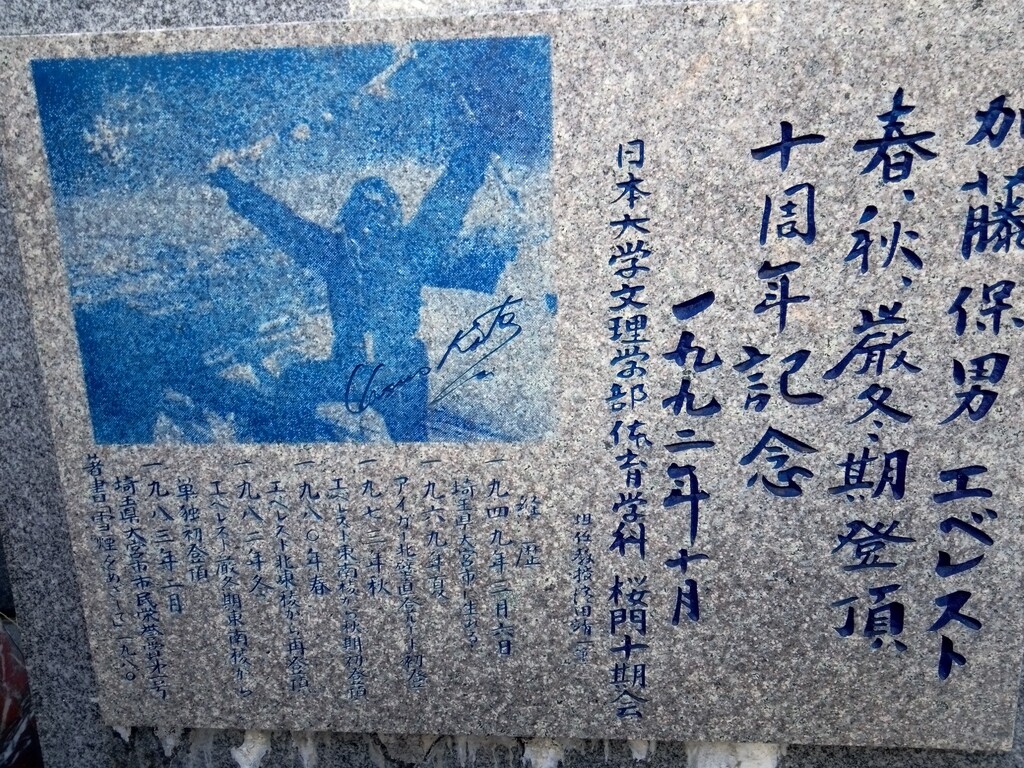 加藤保男 エベレスト
春、秋、厳冬期登頂
十周年記念
一九九二年十月
日本大学文理学部体育学科 桜門十期会
経歴
一九四九年三月六日
埼玉県大宮市に生まれる
一九六九年夏
アイガー北壁直登ルート初登
一九七三年秋
エベレスト東南稜から秋期初登頂
一九八〇年春
エベレスト北東稜から再登頂
一九八二年冬
エベレスト厳冬期東南稜から
単独初登頂
一九八三年二月
埼玉県大宮市市民栄誉賞
著書 雪煙をめざして 一九八〇